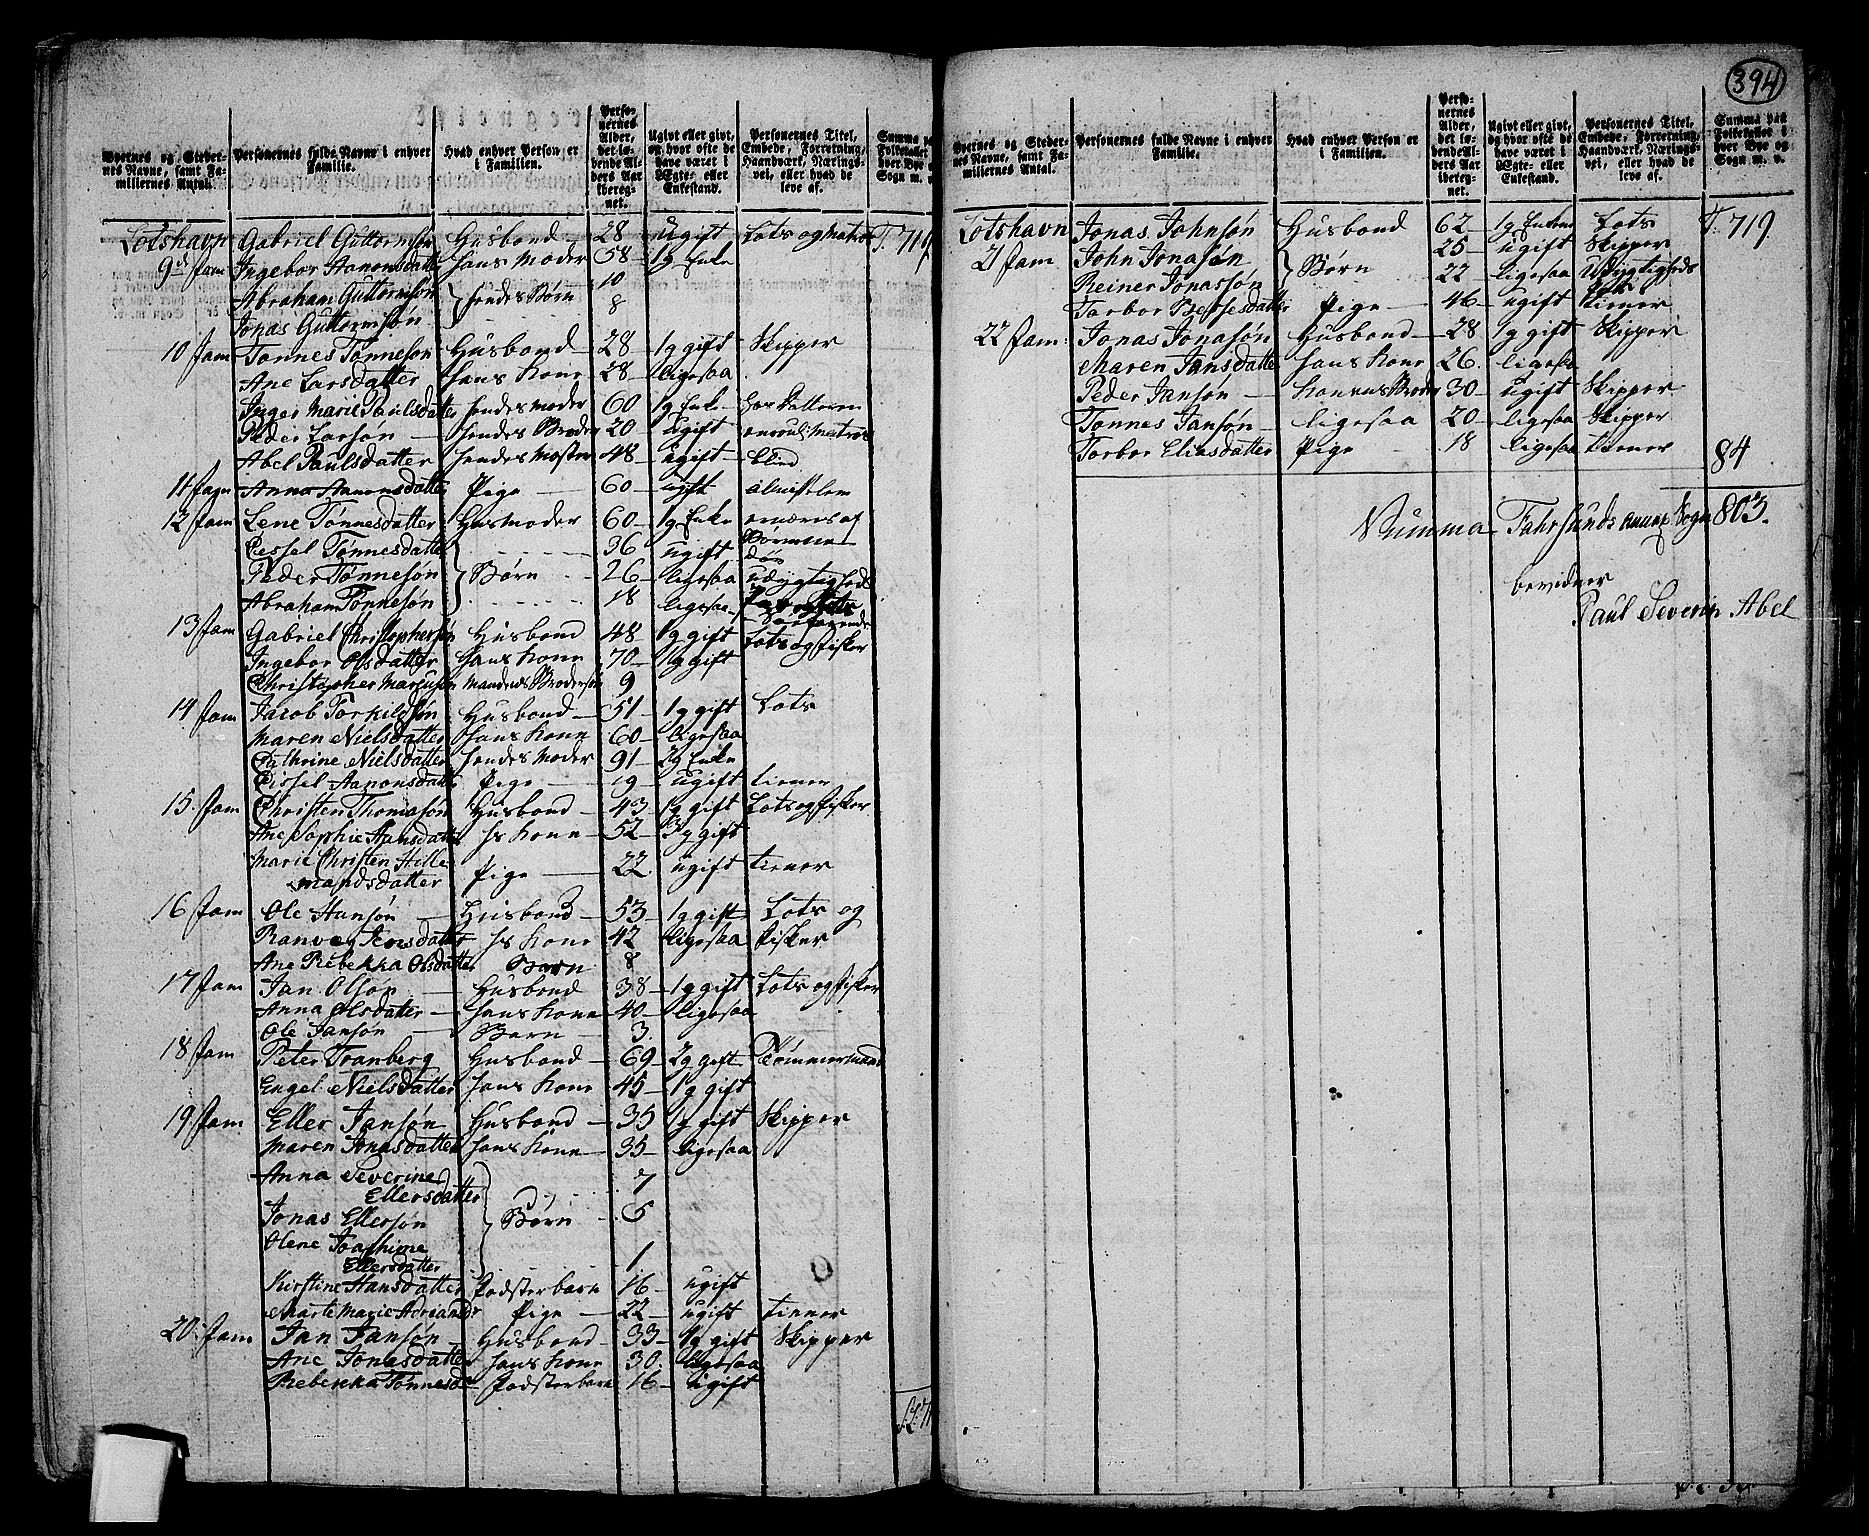 394
Byernes og Stedernes Navne, samt Familiernes Antal. | Personernes fulde Navne i enhver Familie. | Hvad enhver Person er i Familien. | Personernes Alder, det løbende Alders Aar iberegnet. | Ugivt eller givt, og hvor ofte de have været i Egte- eller Enkestand. | Personernes Titel, Embede, Forretning, Haandværk, Næringsvei, eller hvad de leve af. | Summa paa Folketallet i hver Bye og Sogn m. v.
Lotshavn | Gabriel Guttormsøn | Husbond | 28 | ugift | Lots og Matros | T. 719
9de fam | Ingebor Aanonsdatter | hans Moder | 58 | 1g Enke
Abraham Guttormsøn | hendes Børn | 10
Jonas Guttormsøn | 8
10 fam | Tønnes Tønnesøn | Husbond | 28 | 1g gift | Skipper
Ane Larsdatter | hans Kone | 28 | ligesaa
Inger Marie Paulsdatter | hendes Moder | 60 | 1g Enke | hos Datteren
Peder Larsøn | hendes Broder | 20 | ugift
Abel Paulsdatter | hendes Moster | 48 | ugift | blind
11 fam | Anna Aanonsdatter | Pige | 60 | ugift
12 fam | Lene Tønnesdatter | Huusmoder | 60 | 1g Enke | ernæres af Børnene
Sissel Tønnesdatter | 36 | ugift | døv
Peder Tønnesøn | Børn | 26 | ligesaa | udygtigheds
Abraham Tønnesøn | 18 | ligesaa
13 fam | Gabriel Christophersøn | Husbond | 48 | 1g gift | Lots og fisker
Ingebor Olsdatter | hans Kone | 70 | 1g gift
Christopher Marcusøn | Mandens Brodersøn | 9
14 fam | Jacob Torkildsøn | Husbond | 51 | 1g gift | Lots
Maren Nielsdatter | hans Kone | 60 | ligesaa
Cathrine Nielsdatter | hendes Moder | 91 | 2g Enke
Sissel Aanonsdatter | Pige | 19 | ugift | tiener
15. fam | Christen Thomasøn | Husbond | 43 | 1g gift | Lots og fisker
Ane Sophie Hansdatter | hs Kone | 52 | 3g gift
Marie Christen Hille-
mandsdatter | Pige | 22 | ugift | tiener
16 fam | Ole Hansøn | Husbond | 53 | 1g gift | Lots og
Ranveg Jensdatter | hs Kone | 42 | ligesaa | fisker
Ane Rebekka Olsdatter | Barn | 8
17 fam | Jan Olsøn | Husbond | 38 | 1g gift | Lots og fisker
Anna Olsdatter | hans Kone | 40 | ligesaa
Ole Jansøn | Barn | 3
18 fam | Peter Tranberg | Husbond | 69 | 2g gift | Tømmermand
Engel Nielsdatter | hans Kone | 45 | 1g gift
19 fam. | Eller Jansøn | Husbond | 35 | 1g gift | Skipper
Maren Jonasdatter | hans Kone | 35 | ligesaa
Anna Severine
Ellersdatter | 7
Jonas Ellersøn | Børn | 5
Olene Joachime
Ellersdatter | 1
Kirstine Hansdatter | Podsterbarn | 16 | ugift
Marte Marie Adriansdr | Pige | 22 | ugift | tiener
20. fam | Jan Jansøn | Husbond | 33 | 1g gift | Skipper
Ane Jonasdatter | hans Kone | 30 | ligesaa
Rebekka Tønnesd | Podsterbarn | 16 | ugift
Byernes og Stedernes Navne, samt Familiernes Antal. | Personernes fulde Navne i enhver Familie. | Hvad enhver Person er i Familien. | Personernes Alder, det løbende Alders Aar iberegnet. | Ugivt eller givt, og hvor ofte de have været i Egte- eller Enkestand. | Personernes Titel, Embede, Forretning, Haandværk, Næringsvei, eller hvad de leve af. | Summa paa Folketallet i hver Bye og Sogn m. v.
Lotshavn | Jonas Johnsøn | Husbond | 62 | 1g Enkem | Lots | T. 719
21 fam | John Jonasøn | Børn | 25 | ugift | Skipper
Reiner Jonassøn | 22 | ligesaa | udygtigheds
Tarbor Berjesdatter | Pige | 46 | ugift | tiener
22 fam. | Jonas Jonasøn | Husbond | 28 | 1g gift | Skipper
Maren Jansdatter | hans Kone | 26 | ligesaa
Peder Jansøn | Konens Broder | 30 | ugift | Skipper
Tønnes Jansøn | ligesaa | 20 | ligesaa | Skipper
Torbor Eliasdatter | Pige | 18 | ligesaa | tiener | 84
Summa Fahrsunds annex Sogn 803.
bevidner
Paul Severin Abel